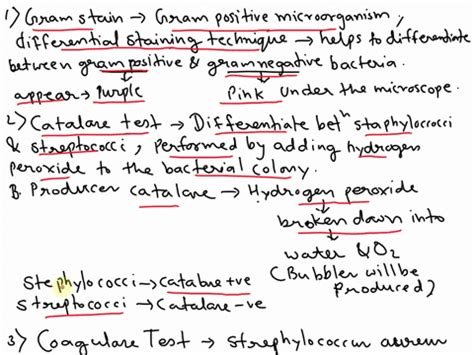 1) Gram stain → Gram positive microorganism,
differential staining technique → helps to differentiate
between gram positive & gram negative bacteria.
appear → Purple Pink under the microscope.
2) Catalase test → Differentiate betn staphylococci
& streptococci, performed by adding hydrogen
peroxide to the bacterial colony.
B. Producer catalase → Hydrogen peroxide
broken down into
water & O2
Staphylococci → Catalase +ve (Bubbler will be
Streptococci → Catalase -ve Produced)
3) Coagulase Test → Strephylococcus aureus